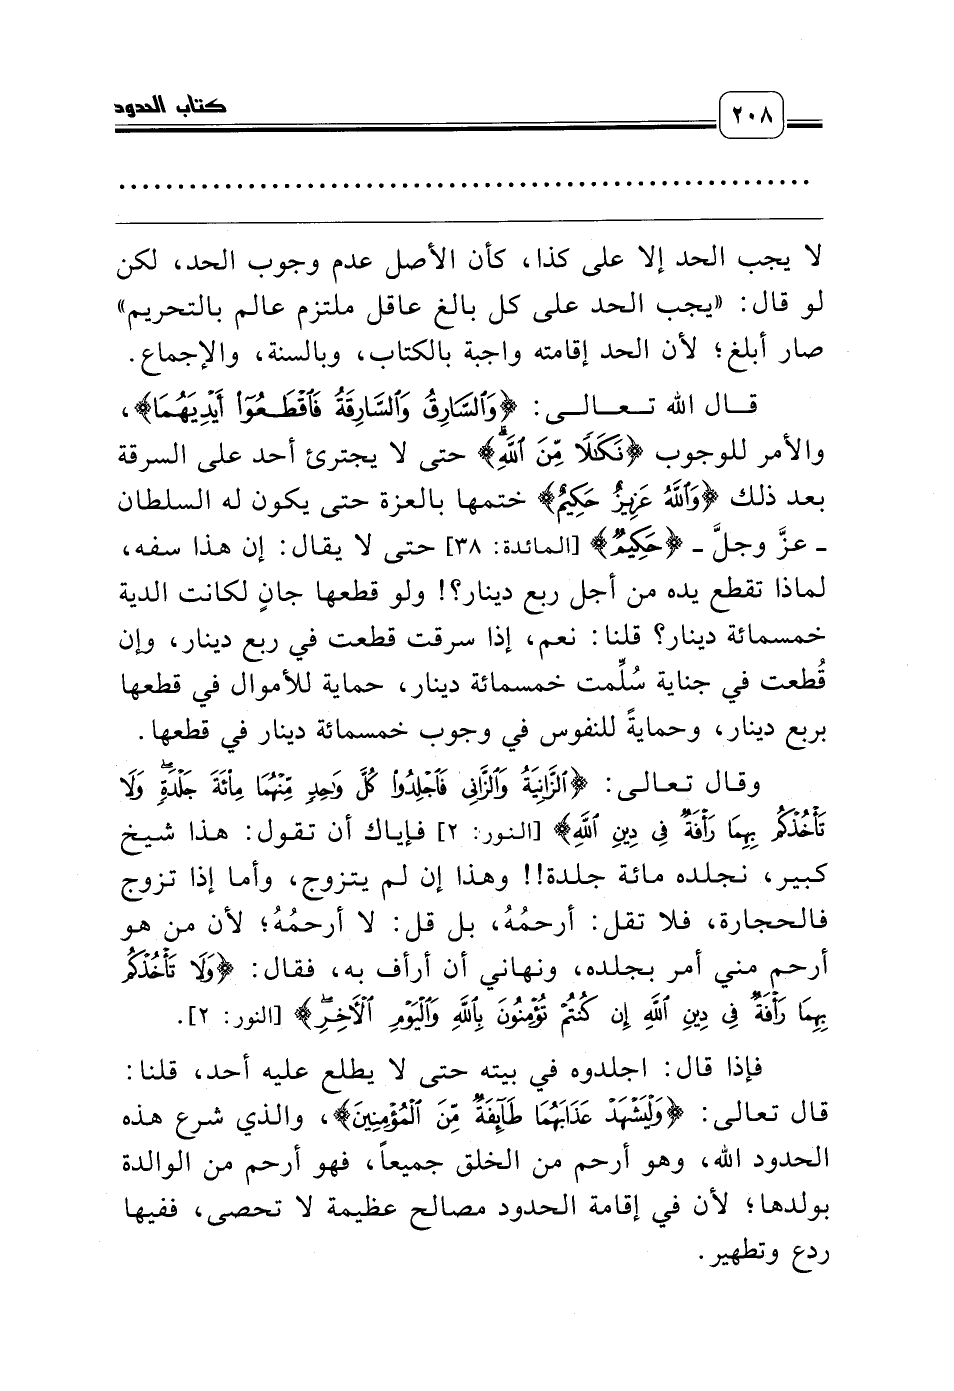 كتاب الحدود
٢٠٨
لا يجب الحد إلا على كذا، كأن الأصل عدم وجوب الحد، لكن
لو قال: «يجب الحد على كل بالغ عاقل ملتزم عالم بالتحريم»
صار أبلغ؛ لأن الحد إقامته واجبة بالكتاب، وبالسنة، والإجماع.
قال الله تعالى: ﴿وَٱلسَّارِقُ وَٱلسَّارِقَةُ فَٱقْطَعُوٓا۟ أَيْدِيَهُمَا﴾،
والأمر للوجوب ﴿نَكَٰلًا مِّنَ ٱللَّهِۗ﴾ حتى لا يجترئ أحد على السرقة
بعد ذلك ﴿وَٱللَّهُ عَزِيزٌ حَكِيمٌ﴾ ختمها بالعزة حتى يكون له السلطان
ـ عزَّ وجلَّ ـ ﴿حَكِيمٌ﴾ [المائدة: ٣٨] حتى لا يقال: إن هذا سفه،
لماذا تقطع يده من أجل ربع دينار؟! ولو قطعها جانٍ لكانت الدية
خمسمائة دينار؟ قلنا: نعم، إذا سرقت قطعت في ربع دينار، وإن
قُطعت في جناية سُلِّمت خمسمائة دينار، حماية للأموال في قطعها
بربع دينار، وحمايةً للنفوس في وجوب خمسمائة دينار في قطعها.
وقال تعالى: ﴿ٱلزَّانِيَةُ وَٱلزَّانِى فَٱجْلِدُوا۟ كُلَّ وَٰحِدٍ مِّنْهُمَا مِا۟ئَةَ جَلْدَةٍۖ وَلَا
تَأْخُذْكُم بِهِمَا رَأْفَةٌ فِى دِينِ ٱللَّهِ﴾ [النور: ٢] فإياك أن تقول: هذا شيخ
كبير، نجلده مائة جلدة!! وهذا إن لم يتزوج، وأما إذا تزوج
فالحجارة، فلا تقل: أرحمُهُ، بل قل: لا أرحمُهُ؛ لأن من هو
أرحم مني أمر بجلده، ونهاني أن أرأف به، فقال: ﴿وَلَا تَأْخُذْكُم
بِهِمَا رَأْفَةٌ فِى دِينِ ٱللَّهِ إِن كُنتُمْ تُؤْمِنُونَ بِٱللَّهِ وَٱلْيَوْمِ ٱلْءَاخِرِۖ﴾ [النور: ٢].
فإذا قال: اجلدوه في بيته حتى لا يطلع عليه أحد، قلنا:
قال تعالى: ﴿وَلْيَشْهَدْ عَذَابَهُمَا طَآئِفَةٌ مِّنَ ٱلْمُؤْمِنِينَ﴾، والذي شرع هذه
الحدود الله، وهو أرحم من الخلق جميعاً، فهو أرحم من الوالدة
بولدها؛ لأن في إقامة الحدود مصالح عظيمة لا تحصى، ففيها
ردع وتطهير.